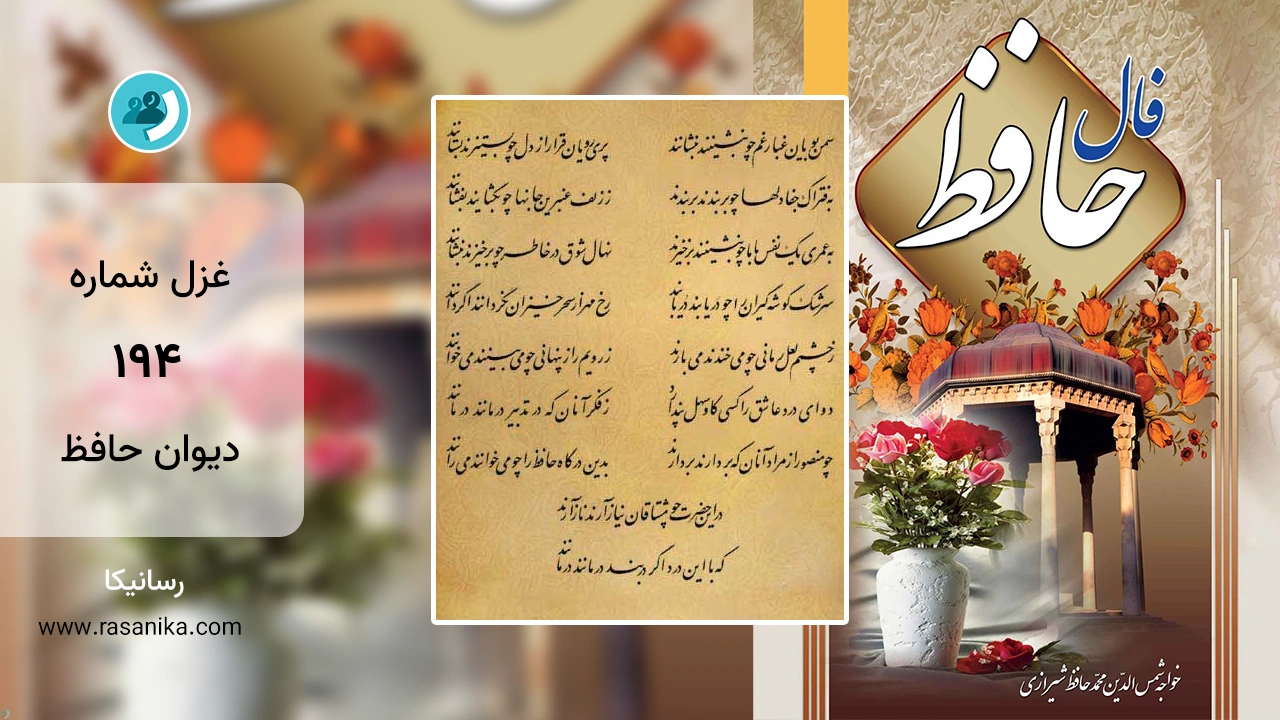 غزل شماره
۱۹۴
دیوان حافظ
رسانیکا
www.rasanika.com
سمن بویان غبار غم چو بنشینند بنشانند
پری رویان قرار از دل چو بستیزند بستانند
به فتراک جفا دلها چو بربندند بربندند
ز زلف عنبرین جانها چو بگشایند بفشانند
به عمری یک نفس با ما چو بنشینند برخیزند
نهال شوق در خاطر چو برخیزند بنشانند
سرشک گوشه گیران را چو دریابند در یابند
رخ مهر از سحر خیزان نگردانند اگر دانند
ز چشمم لعل رمانی چو می خندند می بارند
ز رویم راز پنهانی چو می بینند می خوانند
دوای درد عاشق را کسی کاو سهل پندارد
ز فکر آنان که در تدبیر درمانند در مانند
چو منصور از مراد آنان که بردارند بر دارند
بدین درگاه حافظ را چو می خوانند می رانند
در این حضرت چو مشتاقان نیاز آرند ناز آرند
که با این درد اگر دربند درمانند در مانند
فال
حافظ
خواجه شمس الدّین محمّد حافظ شیرازی